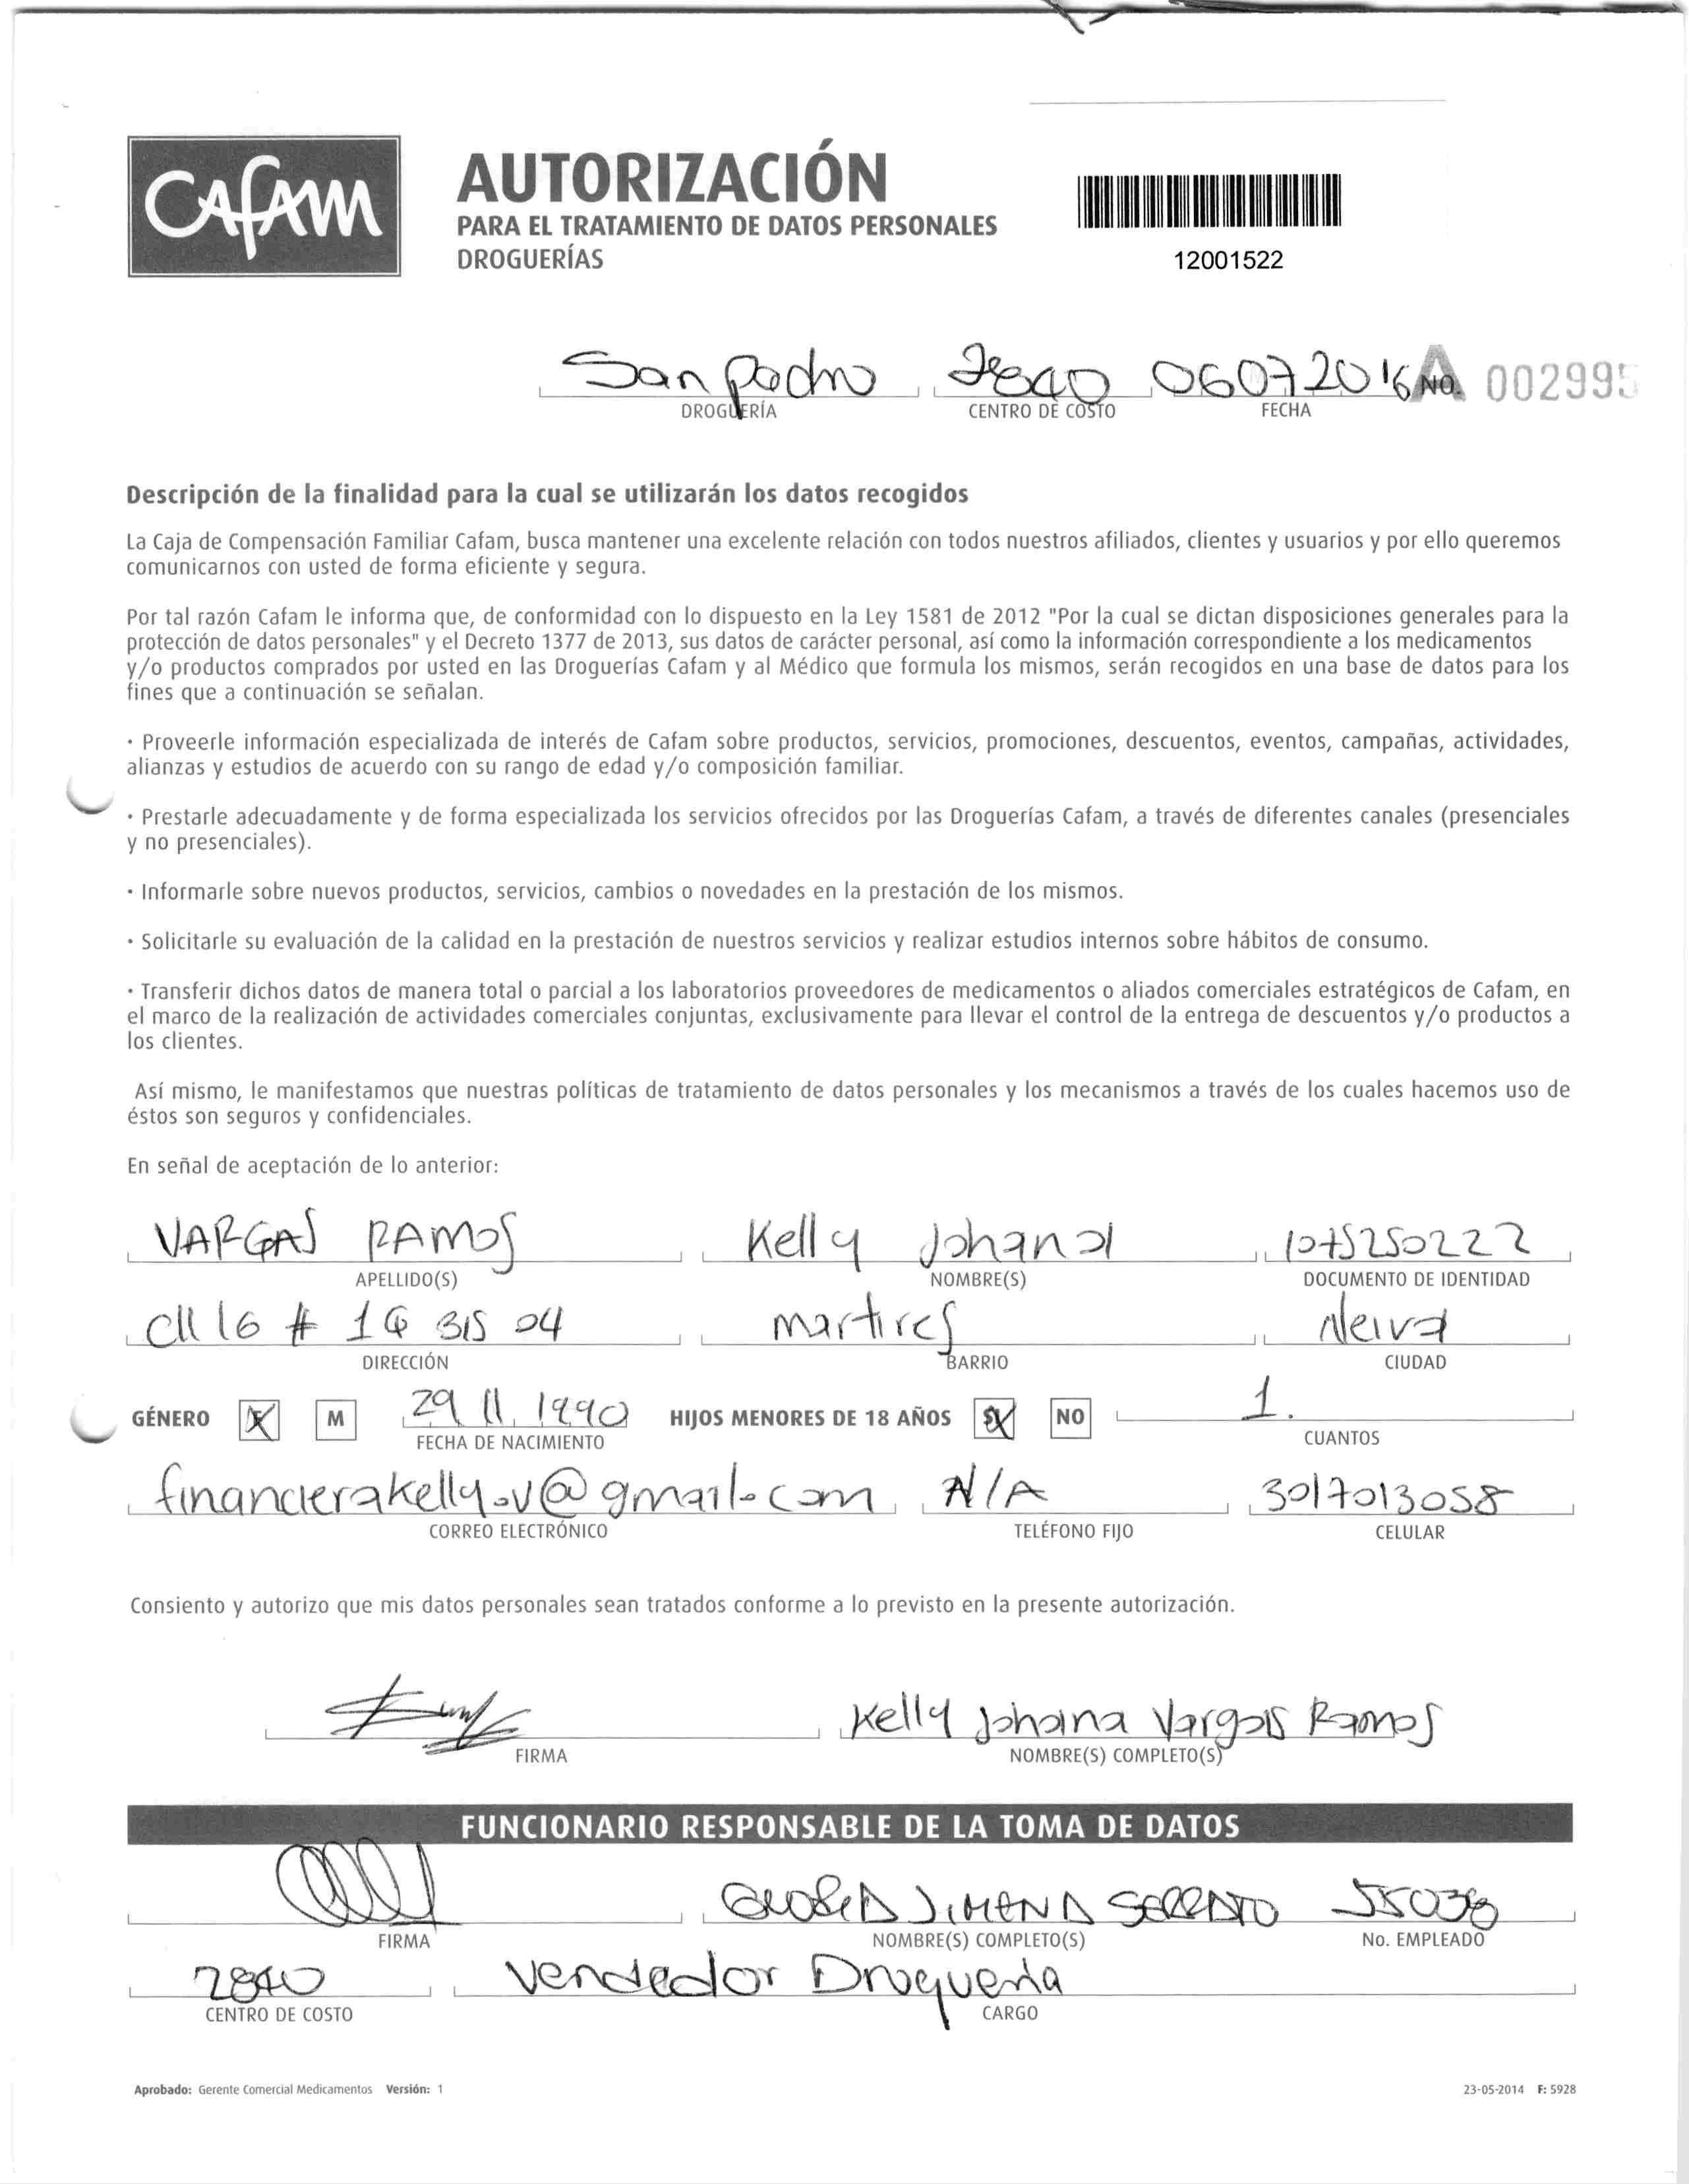 CAFAM
AUTORIZACIÓN
PARA EL TRATAMIENTO DE DATOS PERSONALES
DROGUERÍAS
12001522
San Pedro 2840 06072016 A No. 002995
DROGUERÍA CENTRO DE COSTO FECHA
Descripción de la finalidad para la cual se utilizarán los datos recogidos
La Caja de Compensación Familiar Cafam, busca mantener una excelente relación con todos nuestros afiliados, clientes y usuarios y por ello queremos
comunicarnos con usted de forma eficiente y segura.
Por tal razón Cafam le informa que, de conformidad con lo dispuesto en la Ley 1581 de 2012 "Por la cual se dictan disposiciones generales para la
protección de datos personales" y el Decreto 1377 de 2013, sus datos de carácter personal, así como la información correspondiente a los medicamentos
y/o productos comprados por usted en las Droguerías Cafam y al Médico que formula los mismos, serán recogidos en una base de datos para los
fines que a continuación se señalan.
· Proveerle información especializada de interés de Cafam sobre productos, servicios, promociones, descuentos, eventos, campañas, actividades,
alianzas y estudios de acuerdo con su rango de edad y/o composición familiar.
· Prestarle adecuadamente y de forma especializada los servicios ofrecidos por las Droguerías Cafam, a través de diferentes canales (presenciales
y no presenciales).
· Informarle sobre nuevos productos, servicios, cambios o novedades en la prestación de los mismos.
· Solicitarle su evaluación de la calidad en la prestación de nuestros servicios y realizar estudios internos sobre hábitos de consumo.
· Transferir dichos datos de manera total o parcial a los laboratorios proveedores de medicamentos o aliados comerciales estratégicos de Cafam, en
el marco de la realización de actividades comerciales conjuntas, exclusivamente para llevar el control de la entrega de descuentos y/o productos a
los clientes.
Así mismo, le manifestamos que nuestras políticas de tratamiento de datos personales y los mecanismos a través de los cuales hacemos uso de
éstos son seguros y confidenciales.
En señal de aceptación de lo anterior:
VARGAS RAMOS Kelly Johana 1075250222
APELLIDO(S) NOMBRE(S) DOCUMENTO DE IDENTIDAD
Cll 16 # 1G BIS 04 martires Neiva
DIRECCIÓN BARRIO CIUDAD
GÉNERO F M 29 11 1990 HIJOS MENORES DE 18 AÑOS SI NO 1.
FECHA DE NACIMIENTO CUANTOS
financierakelly.v@gmail.com N/A 3017013058
CORREO ELECTRÓNICO TELÉFONO FIJO CELULAR
Consiento y autorizo que mis datos personales sean tratados conforme a lo previsto en la presente autorización.
Kelly Johana Vargas Ramos
FIRMA NOMBRE(S) COMPLETO(S)
FUNCIONARIO RESPONSABLE DE LA TOMA DE DATOS
JIMENA 55038
FIRMA NOMBRE(S) COMPLETO(S) No. EMPLEADO
2840 Vendedor Drogueria
CENTRO DE COSTO CARGO
Aprobado: Gerente Comercial Medicamentos Versión: 1 23-05-2014 F: 5928